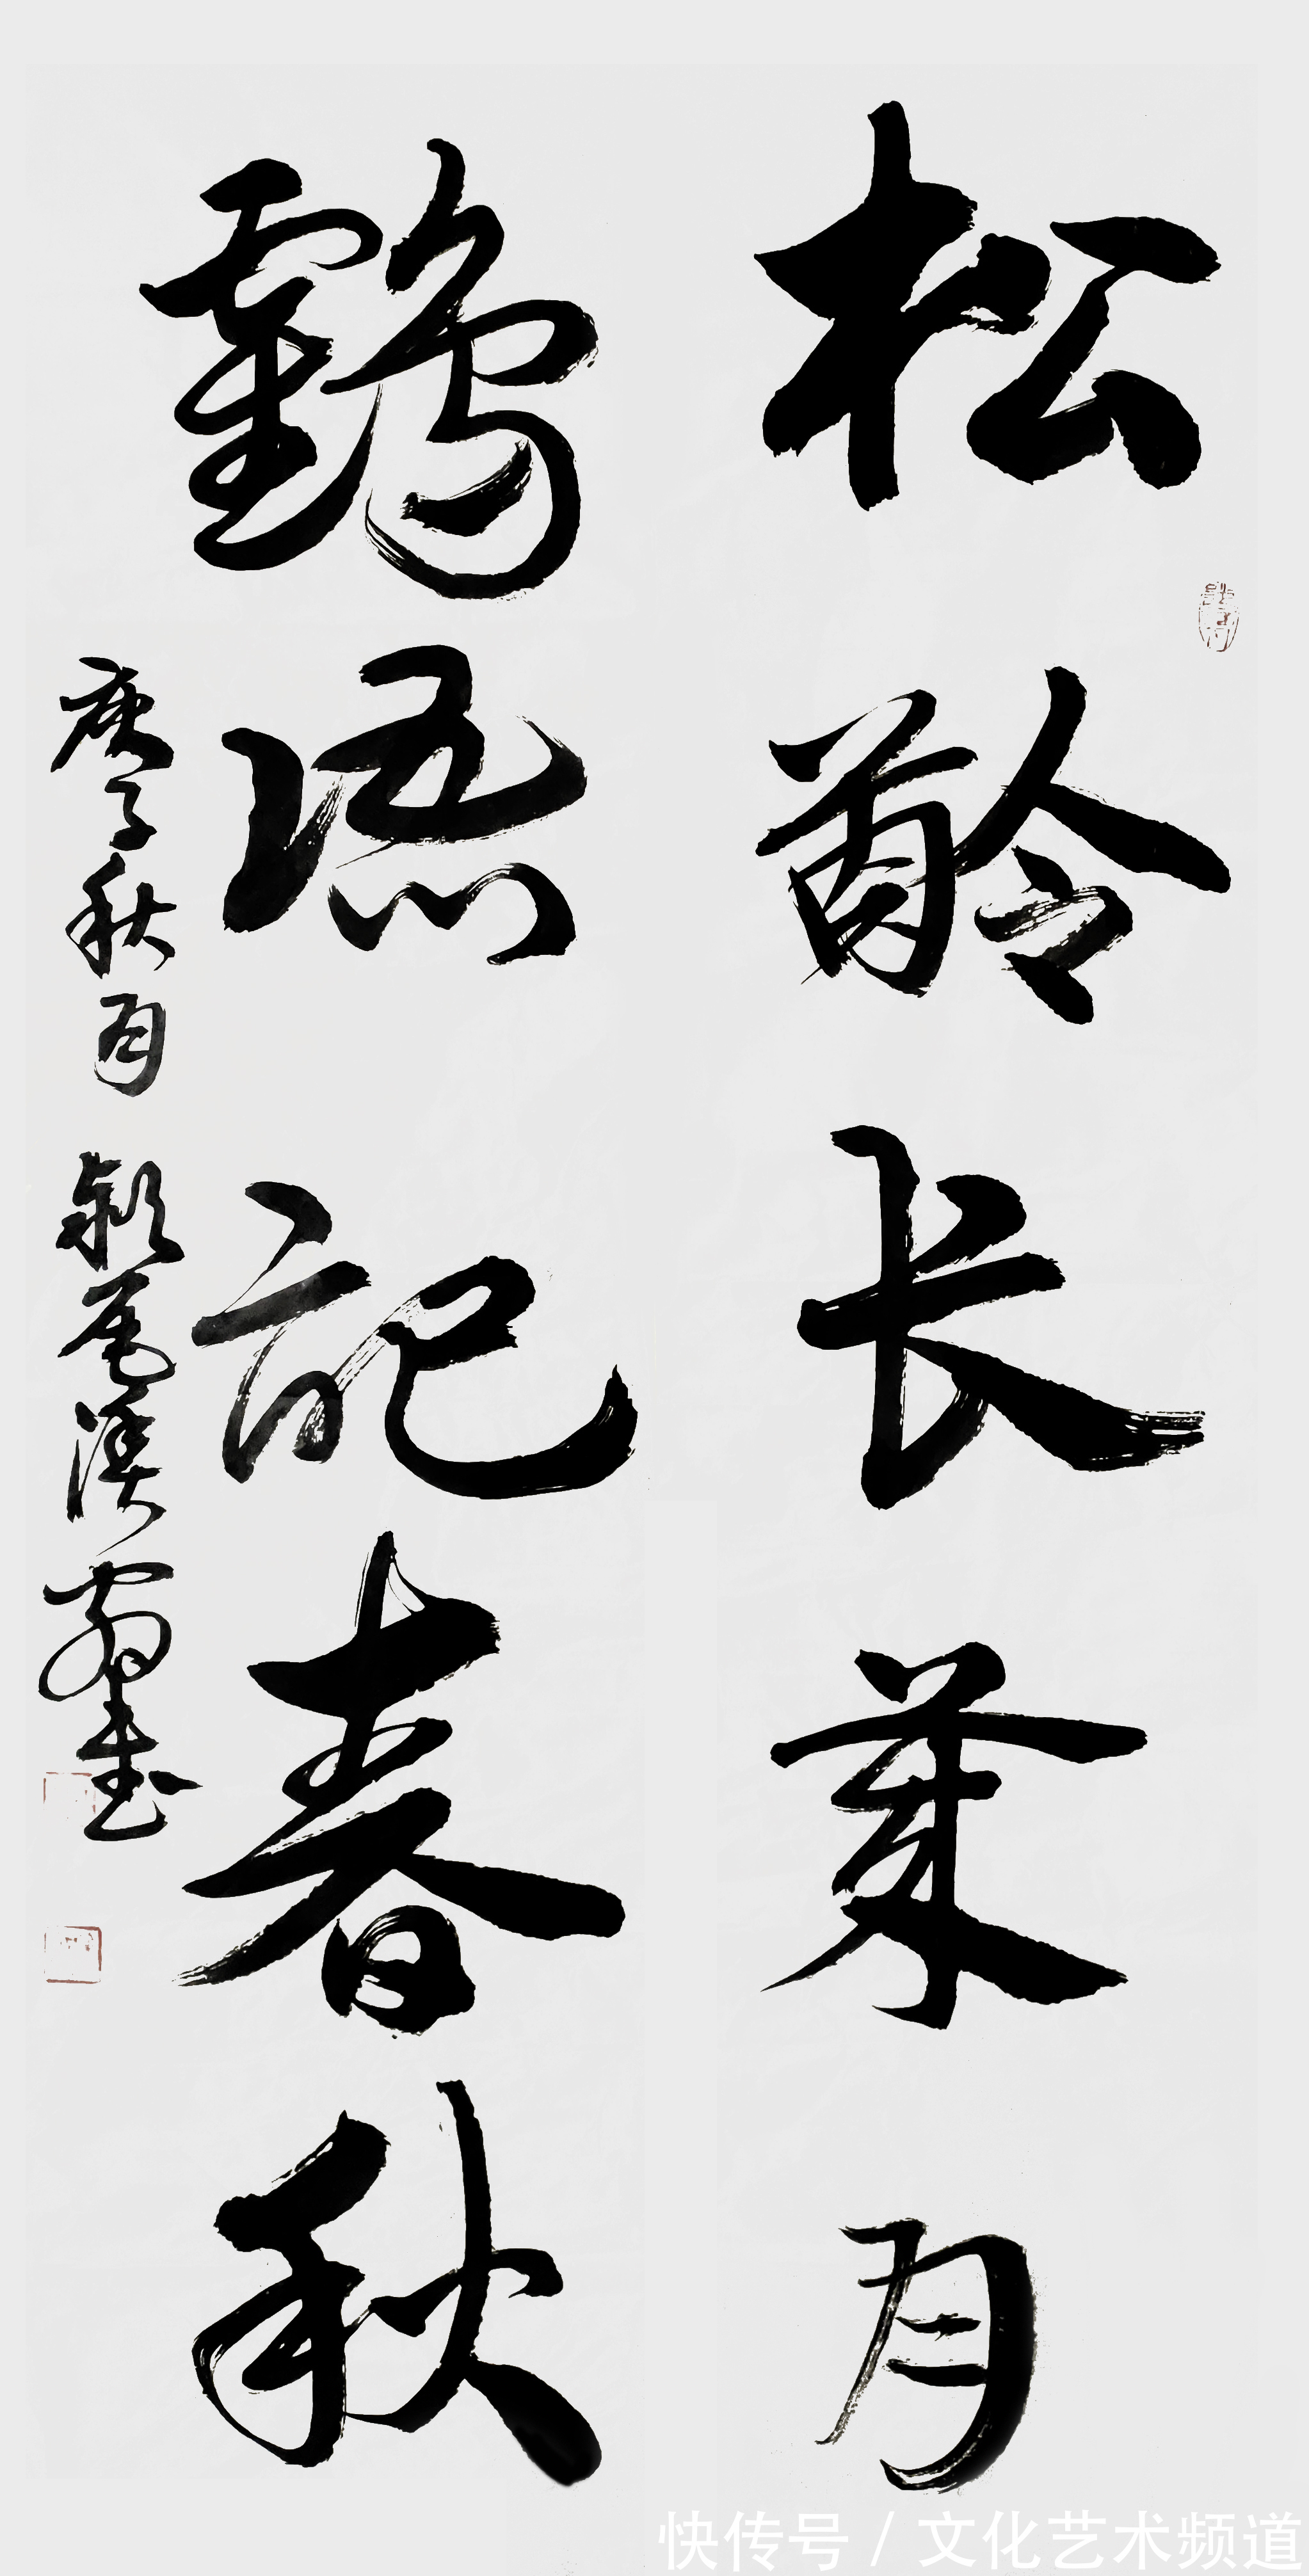 松龄长岁月
鹤语记春秋
庚子秋月
快传号 / 文化艺术频道